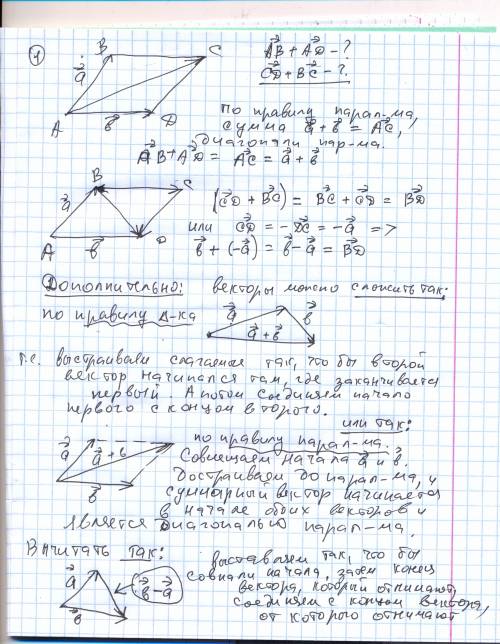 1
B C A D a⃗ b⃗
AB⃗ + AD⃗ - ?
CD⃗ + BC⃗ - ?
По правилу парал-ма,
сумма a⃗ + b⃗ = AC⃗,
диагонали пар-ма.
AB⃗ + AD⃗ = AC⃗ = a⃗ + b⃗
B C A D a⃗ b⃗
(CD⃗ + BC⃗) = BC⃗ + CD⃗ = BD⃗
или CD⃗ = -DC⃗ = -a⃗ =>
b⃗ + (-a⃗) = b⃗ - a⃗ = BD⃗
Дополнительно: векторы можно сложить так:
по правилу Δ-ка
a⃗ b⃗ a⃗ + b⃗
т.е. выстраивали слагаемые так, что бы второй
вектор начинался там, где заканчивается
первый. А потом соединяем начало
первого с концом второго.
или так:
по правилу парал-ма.
a⃗ a⃗ + b b⃗
Совмещаем начала a⃗ и b⃗.
Достраиваем до парал-ма, и
суммарный вектор начинается
в начале обоих векторов и
является диагональю парал-ма.
Вычитать так:
выставляем так, что бы
совпали начала, затем конец
вектора, который отнимают,
соединяем с концом вектора,
от которого отнимают
a⃗ b⃗ - a⃗ b